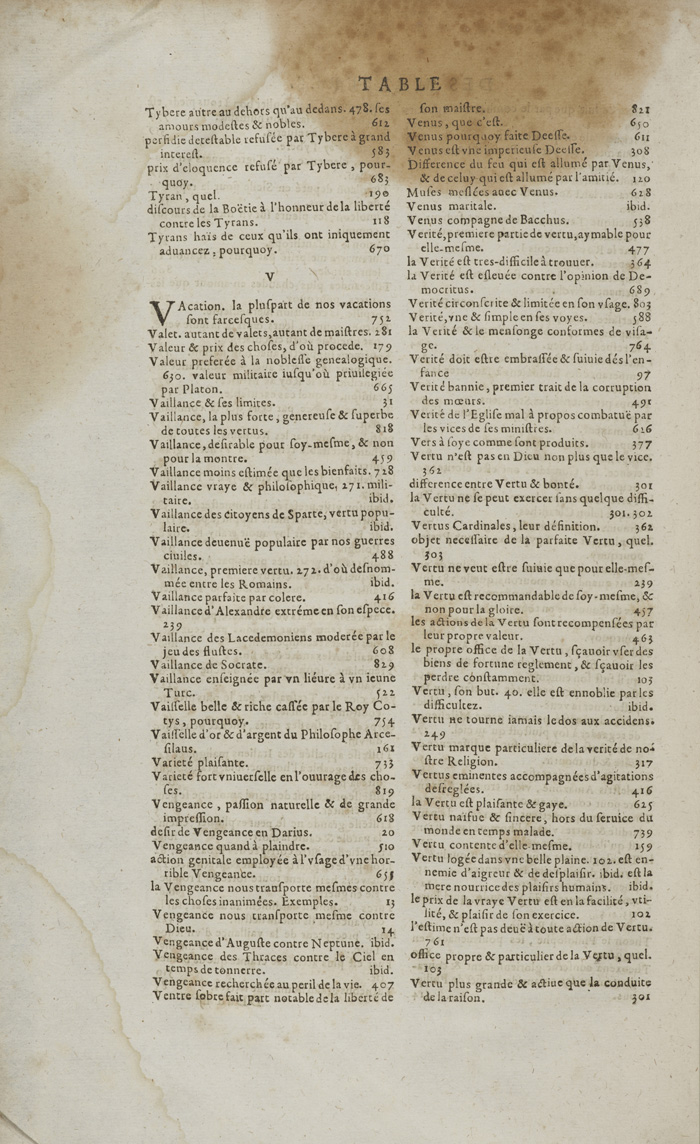 TABLE
Tybere autre au dehors qu'au dedans. 478. ses
amours modestes & nobles. 612
perfidie detestable refusée par Tybere à grand
interest. 583
prix d'eloquence refusé par Tybere, pour-
quoy. 683
Tyran, quel. 190
discours de la Boëtie à l'honneur de la liberté
contre les Tyrans. 118
Tyrans haïs de ceux qu'ils ont iniquement
aduancez, pourquoy. 670
V
VAcation. la pluspart de nos vacations
sont farcesques. 752
Valet. autant de valets, autant de maistres. 281
Valeur & prix des choses, d'où procede. 179
Valeur preferée à la noblesse genealogique.
630. valeur militaire iusqu'où priuilegiée
par Platon. 665
Vaillance & ses limites. 31
Vaillance, la plus forte, genereuse & superbe
de toutes les vertus. 818
Vaillance, desirable pour soy-mesme, & non
pour la montre. 459
Vaillance moins estimée que les bienfaits. 728
Vaillance vraye & philosophique, 271. mili-
taire. ibid.
Vaillance des citoyens de Sparte, vertu popu-
laire. ibid.
Vaillance deuenuë populaire par nos guerres
ciuiles. 488
Vaillance, premiere vertu. 272. d'où desnom-
mée entre les Romains. ibid.
Vaillance parfaite par colere. 416
Vaillance d'Alexandre extréme en son espece.
239
Vaillance des Lacedemoniens moderée par le
jeu des flustes. 608
Vaillance de Socrate. 829
Vaillance enseignée par vn liéure à vn ieune
Turc. 522
Vaisselle belle & riche cassée par le Roy Co-
tys, pourquoy. 754
Vaisselle d'or & d'argent du Philosophe Arce-
silaus. 161
Varieté plaisante. 733
Varieté fort vniuerselle en l'ouurage des cho-
ses. 819
Vengeance, passion naturelle & de grande
impression. 618
desir de Vengeance en Darius. 20
Vengeance quand à plaindre. 510
action genitale employée à l'vsage d'vne hor-
rible Vengeance. 655
la Vengeance nous transporte mesmes contre
les choses inanimées. Exemples. 13
Vengeance nous transporte mesme contre
Dieu. 14
Vengeance d'Auguste contre Neptune. ibid.
Vengeance des Thraces contre le Ciel en
temps de tonnerre. ibid.
Vengeance recherchée au peril de la vie. 407
Ventre sobre fait part notable de la liberté de
son maistre. 821
Venus, que c'est. 650
Venus pourquoy faite Deesse. 611
Venus est vne imperieuse Deesse. 308
Difference du feu qui est allumé par Venus,
& de celuy qui est allumé par l'amitié. 120
Muses meslées auec Venus. 628
Venus maritale. ibid.
Venus compagne de Bacchus. 538
Verité, premiere partie de vertu, aymable pour
elle-mesme. 477
la Verité est tres-difficile à trouuer. 364
la Verité est esleuée contre l'opinion de De-
mocritus. 689
Verité circonscrite & limitée en son vsage. 803
Verité, vne & simple en ses voyes. 588
la Verité & le mensonge conformes de visa-
ge. 764
Verité doit estre embrassée & suiuie dés l'en-
fance 97
Verité bannie, premier trait de la corruption
des mœurs. 491
Verité de l'Eglise mal à propos combatuë par
les vices de ses ministres. 626
Vers à soye comme sont produits. 377
Vertu n'est pas en Dieu non plus que le vice.
362
difference entre Vertu & bonté. 301
la Vertu ne se peut exercer sans quelque diffi-
culté. 301.302
Vertus Cardinales, leur définition. 362
objet necessaire de la parfaite Vertu, quel.
303
Vertu ne veut estre suiuie que pour elle-mes-
me. 239
la Vertu est recommandable de soy-mesme, &
non pour la gloire. 457
les actions de la Vertu sont recompensées par
leur propre valeur. 463
le propre office de la Vertu, sçauoir vser des
biens de fortune reglement, & sçauoir les
perdre constamment. 103
Vertu, son but. 40. elle est ennoblie par les
difficultez. ibid.
Vertu ne tourne iamais le dos aux accidens.
249
Vertu marque particuliere de la verité de no-
stre Religion. 317
Vertus eminentes accompagnées d'agitations
desreglées. 416
la Vertu est plaisante & gaye. 625
Vertu naïfue & sincere, hors du seruice du
monde en temps malade. 739
Vertu contente d'elle-mesme. 159
Vertu logée dans vne belle plaine. 102. est en-
nemie d'aigreur & de desplaisir. ibid. est la
mere nourrice des plaisirs humains. ibid.
le prix de la vraye Vertu est en la facilité, vti-
lité, & plaisir de son exercice. 102
l'estime n'est pas deuë à toute action de Vertu.
761
office propre & particulier de la Vertu, quel.
103
Vertu plus grande & actiue que la conduite
de la raison. 301